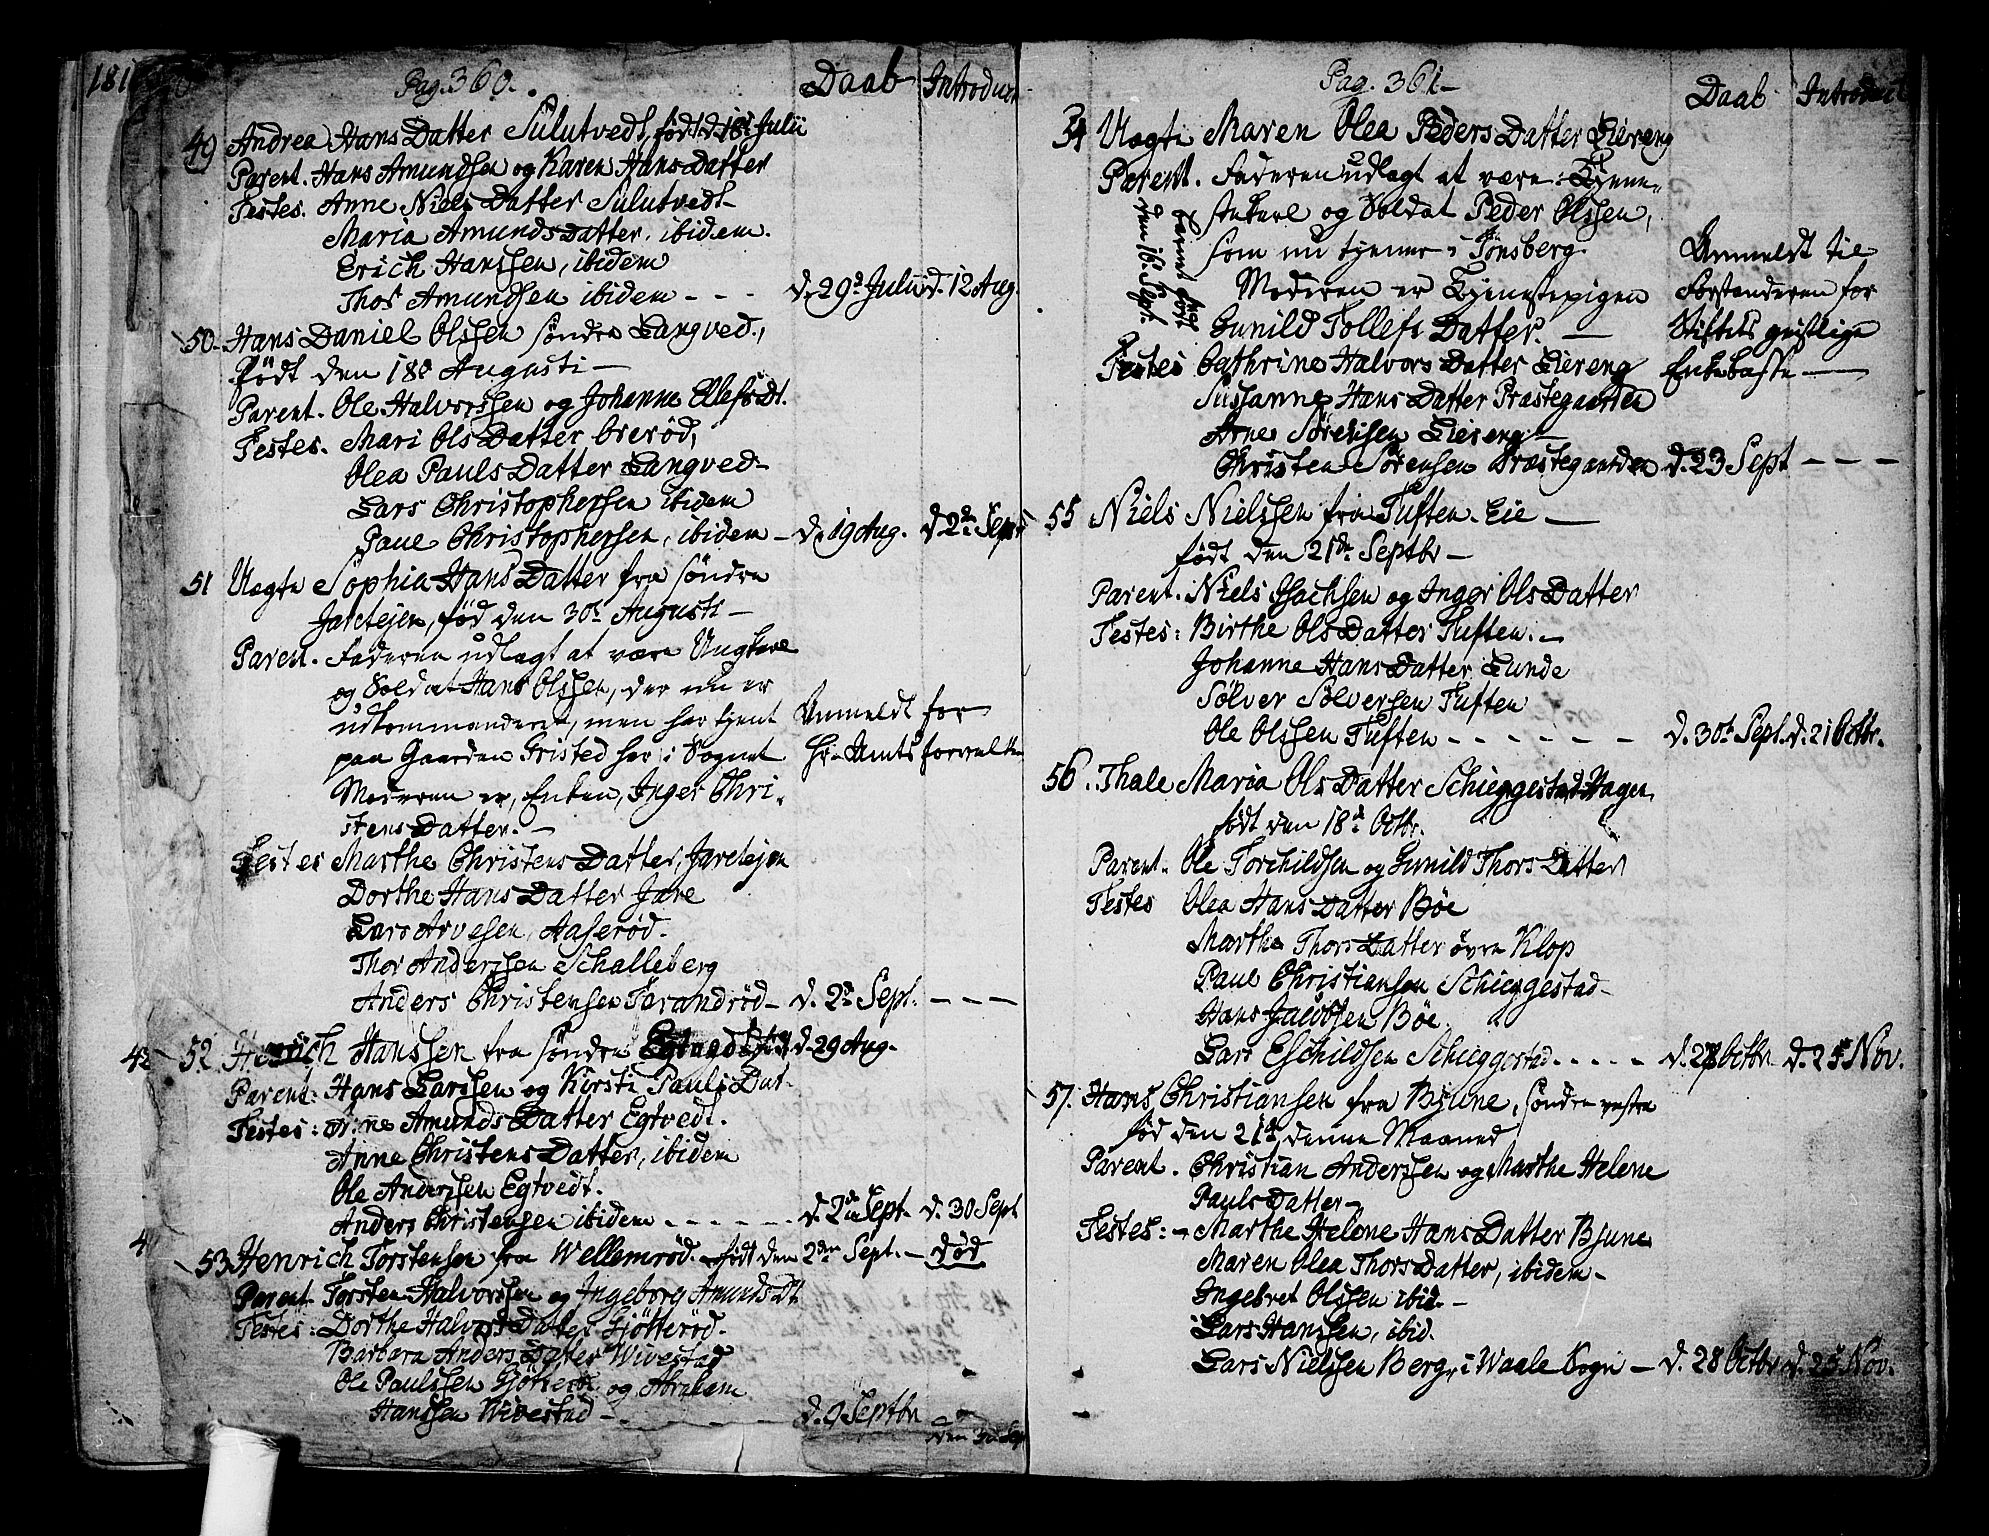 181
Pag. 360.
Daab
Introduct
49 Andrea Hans Datter Sulutvedt, født d. 18de Julii
Parent. Hans Amundsen og Karen Hans Datter
Testes. Anne Niels Datter Sulutvedt
Maria Amunds Datter, ibidem.
Erich Hanssen, ibidem
Thor Amundsen ibidem - - - d. 29d Julii d. 12 Aug.
50. Hans Daniel Olssen søndre Langved,
født den 18d Augusti —
Parent. Ole Halvorssen og Johanne Ellefs Dt.
Testes. Mari Ols Datter Orerød,
Olea Pauls Datter Langved
Lars Christophersen ibidem
Paul Christophersen, ibidem — d. 19 Aug. d. 2d Sept
51 Uægte Sophia Hans Datter fra søndre
Jarelejen, fød den 30te Augusti —
Paren. Faderen udlagt at være Ungkarl
og Soldat Hans Olssen, der nu er
udkommanderet, men har tjent
paa Gaarden Gristed her i Sognet
Moderen er, Enken, Inger Chri-
stens Datter. —
Anmeldt for
Hr. Amtsforvalt
Testes Marthe Christens Datter, Jarelejen
Dorthe Hans Datter Jare
Lars Arvesen, Aaserød.
Thor Anderssen Schalleberg
Anders Christensen Farandrød — d. 2d Sept. — — —
42 52 Henrich Hanssen fra søndre Egtved født d. 29 Aug.
Parent: Hans Larssen og Kirsti Pauls Dat-
Testes: Anne Amunds Datter Egtvedt.
Anne Christens Datter, ibidem
Ole Anderssen Egtvedt.
Anders Christensen ibidem - - - - - - d. 2den Sept. d. 30 Sept
4
53. Henrich Torstensen fra Wellemrød. født den 2den Sept. — død
Parent Torsten Halvorssen og Ingeborg Amunds Dt
Testes: Dorthe Halvors Datter Gjøtterød.
Barbara Anders Datter Wivestad
Ole Paulssen Gjøtterød og Abraham
Hanssen Wivestad — - - - d. 9 Septbr
den 30 Sep
Pag. 361.
Daab
Introduct
54 Uægte Maren Olea Peders Datter Liereng
Parent. Faderen udlagt at være: Tjene-
stekarl og Soldat Peder Olssen,
som nu tjener i Tønsberg.
Moderen er Tjenestepigen
Gunild Tollefs Datter. —
Barnet født
den 16. Sept.
Anmeldt til
Forstanderen for
Stiftets geistlige
Enkekasse —
Testes Cathrine Halvors Datter Liereng
Susanne Hans Datter Præstegaarden
Arne Sørensen Liereng —
Christen Sørensen Præstegaarden d. 23 Sept — — —
55 Niels Nielssen fra Tuften. Eie —
født den 21de Septbr —
Parent. Niels Isachsen og Inger Ols Datter
Testes: Birthe Ols Datter Tuften. —
Johanne Hans Datter Lunde
Sølver Sølversen Tuften
Ole Olssen Tuften - - - - - - d. 30te Sept. d. 21 Octbr.
56. Thale Maria Ols Datter Schieggestad Hagen,
født den 18d Octbr.
Parent. Ole Torchildsen og Gunild Thors Datter
Testes Olea Hans Datter Bøe
Marthe Thors Datter øvre Klop
Paul Christiansen Schieggestad
Hans Jacobsen Bøe
Lars Eschildsen Schieggestad - - - - - d. 28 Octbr d. 25 Nov.
57. Hans Christiansen fra Bjune, søndre vestre
fød den 21de denne Maaned
Parent. Christian Anderssen og Marthe Helene
Pauls Datter —
Testes: — Marthe Helene Hans Datter Bjune
Maren Olea Thors Datter, ibidem —
Ingebret Olssen ibid. —
Lars Hanssen, ibid.
Lars Nielssen Berg, i Waale Sogn — d. 28 Octbr d. 25 Nov.